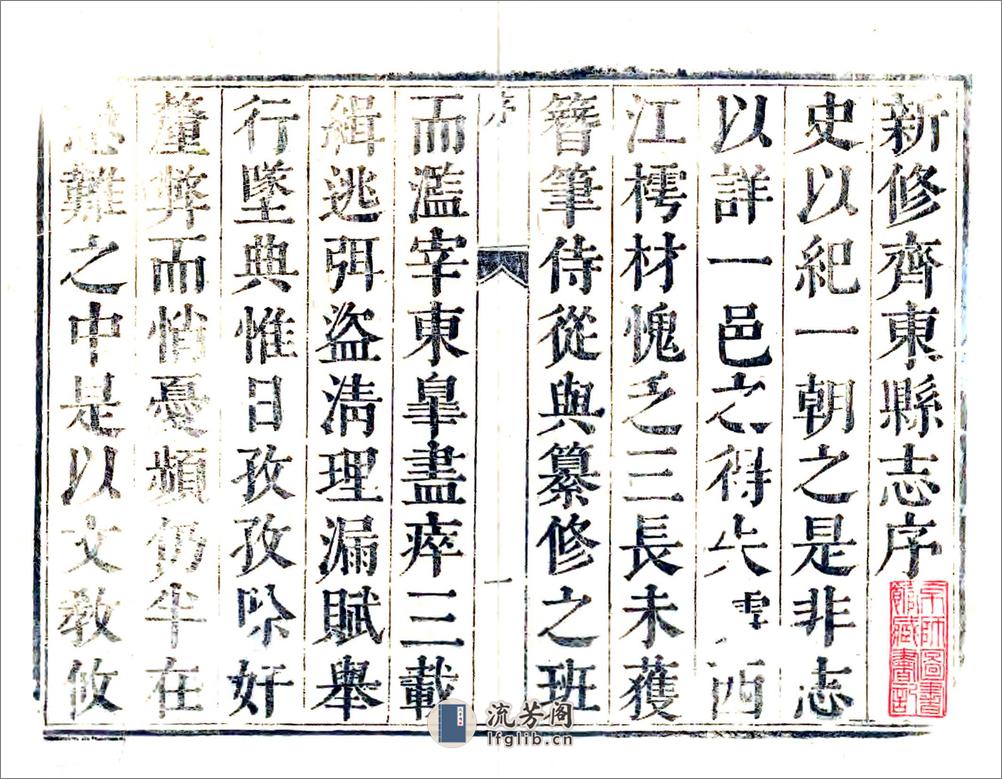 新修齊東縣志序
史以紀一朝之是非志
以詳一邑之得失西
江樗材愧乏三長未獲
簪筆侍從與纂修之班
序 一
而濫宰東皐盡瘁三載
緝逃弭盜清理漏賦舉
行墜典惟日孜孜除奸
釐弊而悄憂頻仍半在
難之中是以文教攸
京師圖書
館藏書記
流芳阁
lfglib.cn